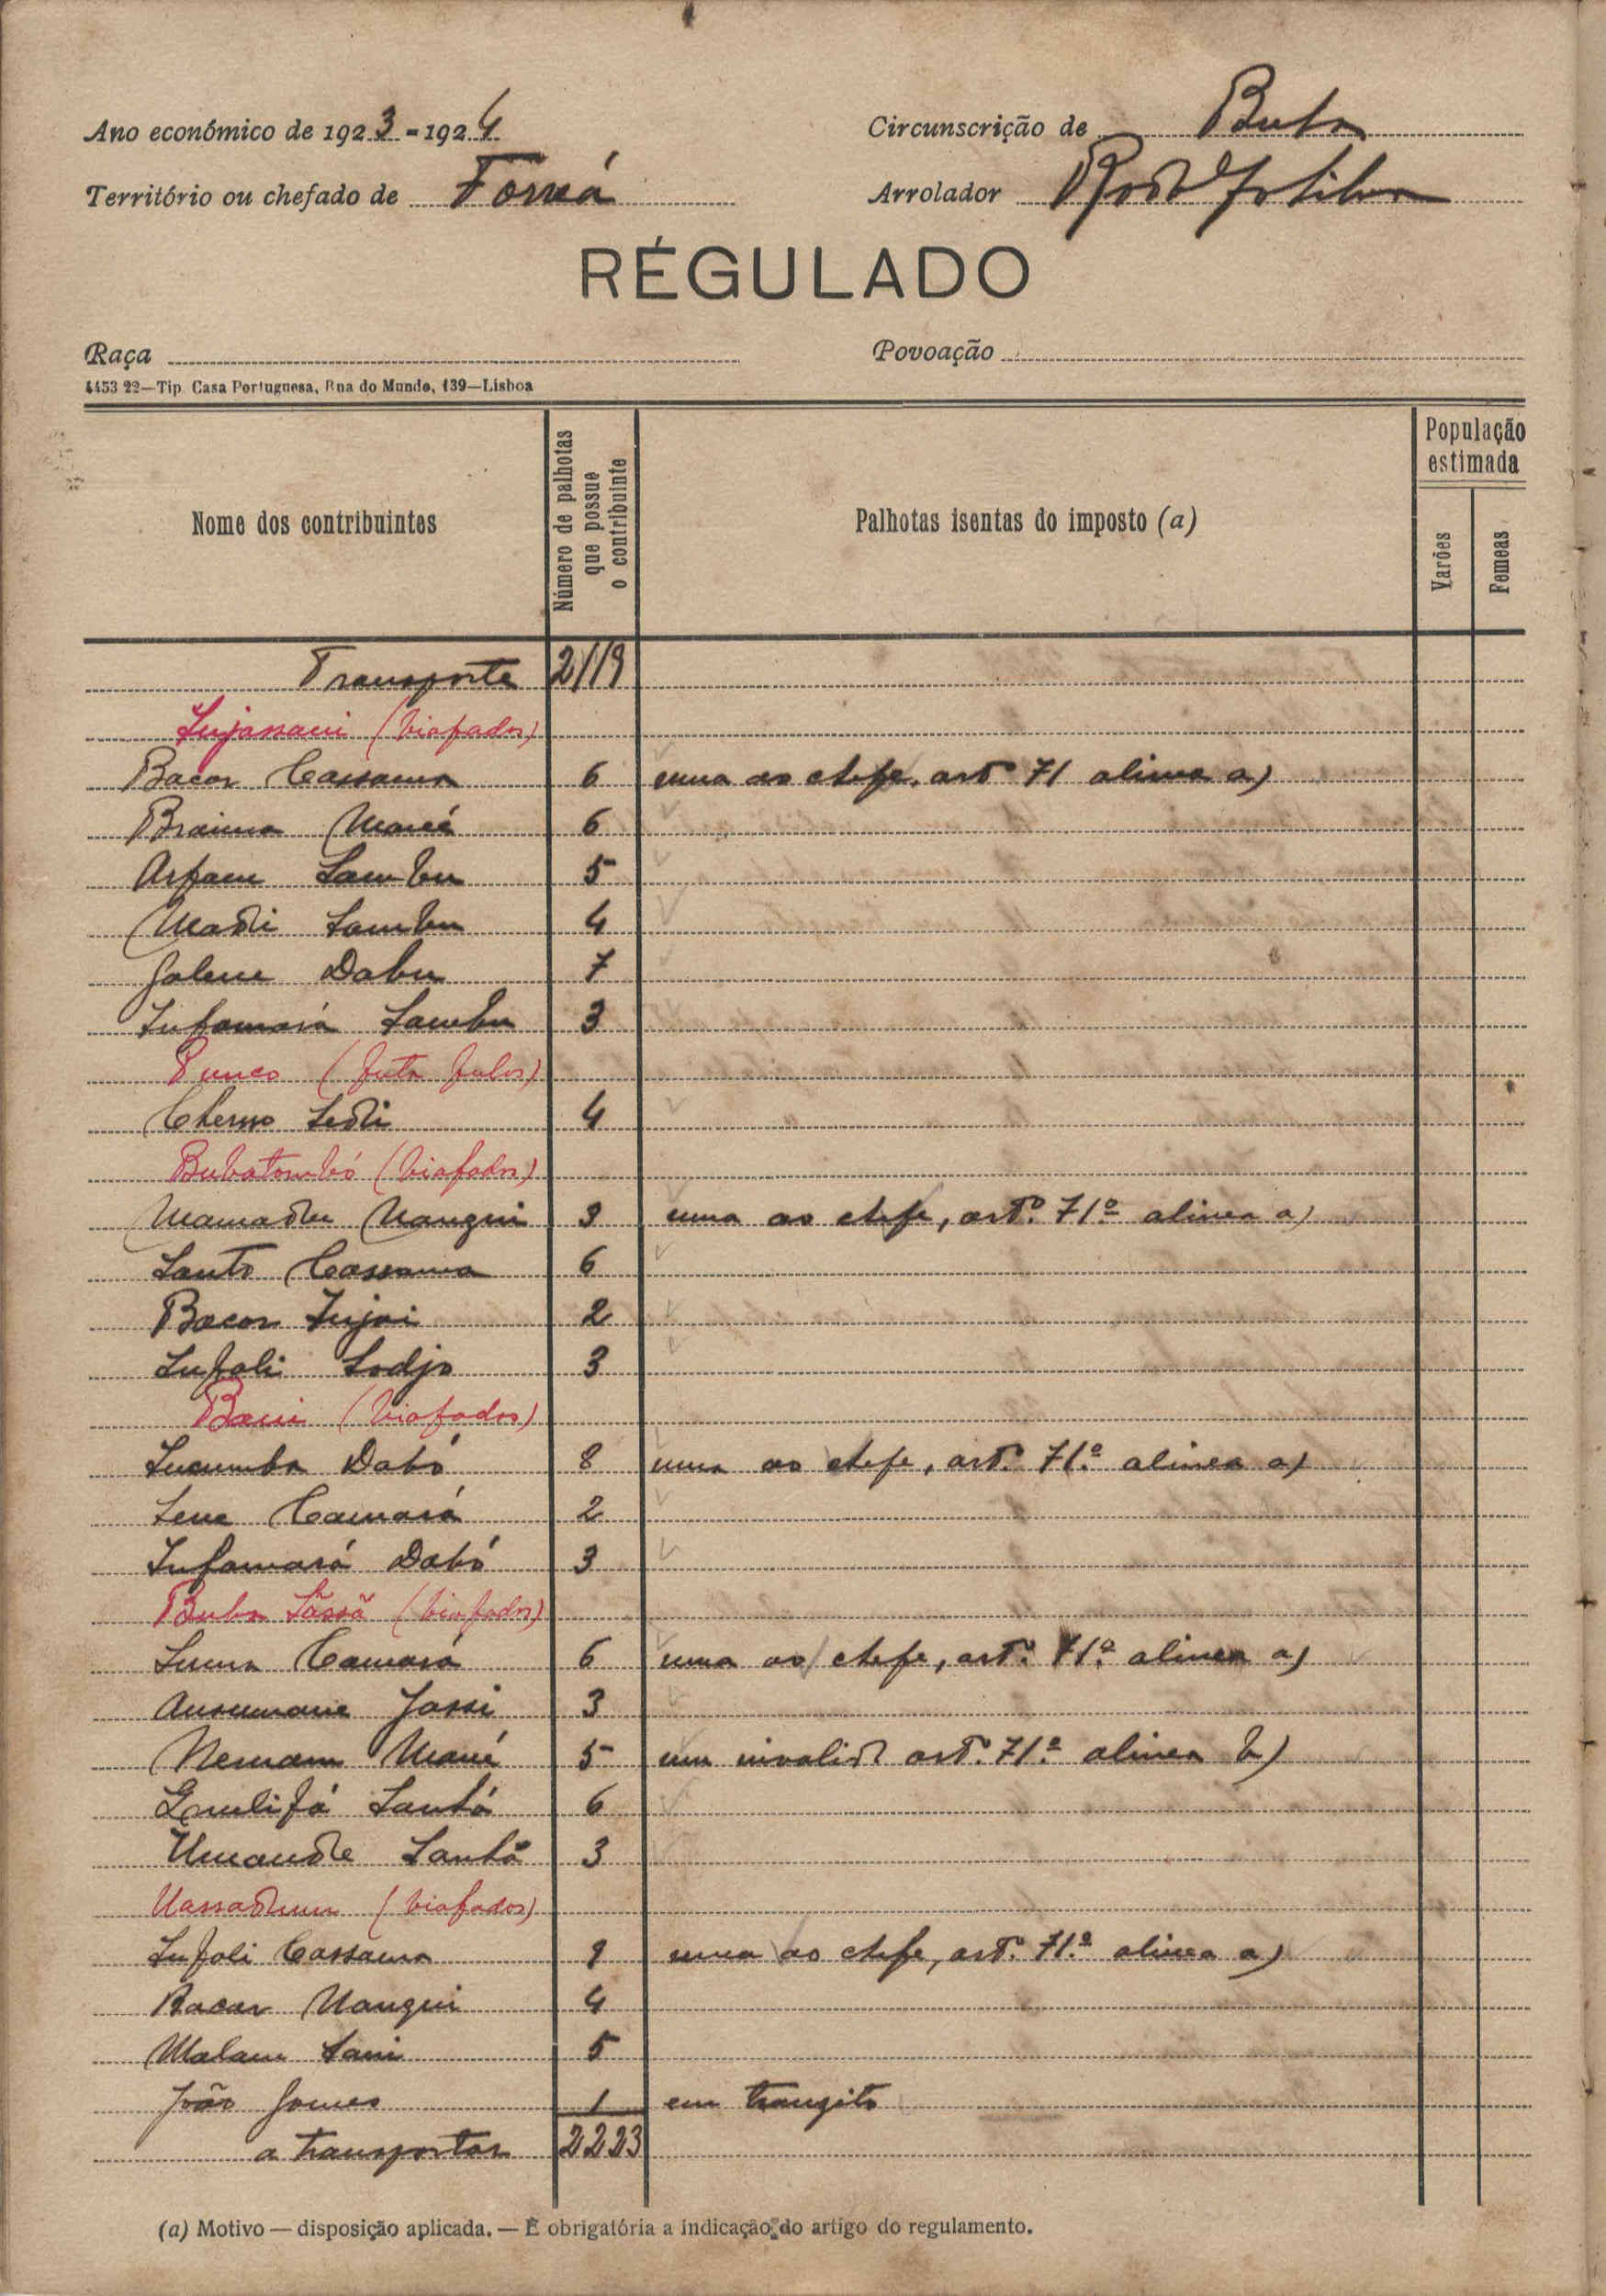 Ano económico de 1923-1924
Circunscrição de Buba
Território ou chefado de Forreá
Arrolador
RÉGULADO
Raça
Povoação
4453 22—Tip. Casa Portuguesa, Rua do Mundo, 139—Lisboa
Nome dos contribuintes
Número de palhotas que possue o contribuinte
Palhotas isentas do imposto (a)
População estimada
Varões
Femeas
Transporte 2119
(biafadas)
Bacar Cassama 6 uma ao chefe, artº 71 alinea a)
Braima Mané 6
Arfam Sambu 5
Madi Sambu 4
Dabu 7
Infamará Sambu 3
(futa fulas)
Cherno Sedi 4
Bubatombó (biafadas)
Mamadu Nangui 3 uma ao chefe, artº. 71º alinea a)
Santo Cassama 6
Bacar Injai 2
Infali Sodjo 3
(biafadas)
Dabó 8 uma ao chefe, artº. 71º alinea a)
Sene Camará 2
Infamará Dabó 3
Buba (biafadas)
Camará 6 uma ao chefe, artº. 71º alinea a)
Ansumane Jassi 3
Mané 5 um invalido artº. 71º alinea b)
Santó 6
3
(biafadas)
Infali Cassama uma ao chefe, artº. 71º alinea a)
Bacar Nangui 4
Malam Sani 5
João Gomes 1 em transito
a transportar 2223
(a) Motivo — disposição aplicada. — É obrigatória a indicação do artigo do regulamento.